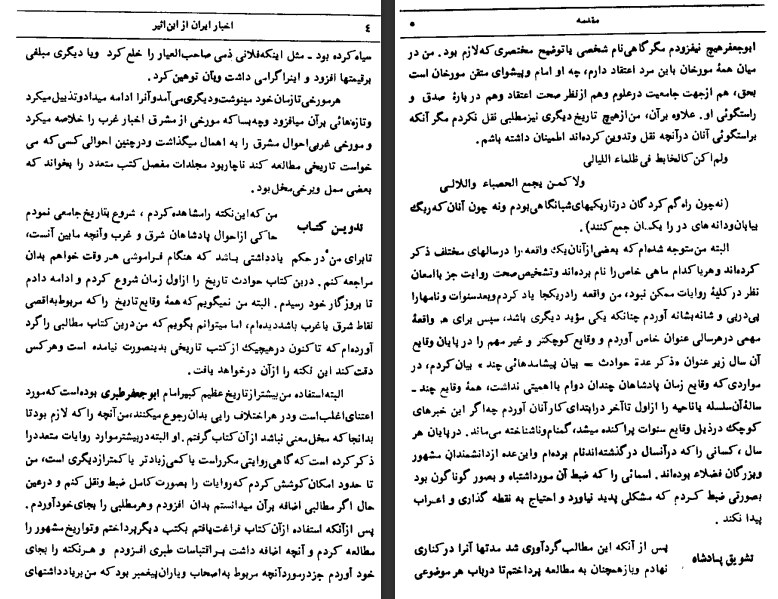 اخبار ایران از ابن‌اثیر ٤
سیاه کرده بود ـ مثل اینکه فلانی ذمی صاحب‌العیار را خلع کرد ویا دیگری مبلغی
برقیمتها افزود و اینرا گرامی داشت وبآن توهین کرد.
هرمورخی تازمان خود مینوشت ودیگری می‌آمد وآنرا ادامه میداد و تذییل میکرد
وتازه‌هائی برآن میافزود وچه بسا که مورخی از مشرق اخبار غرب را خلاصه میکرد
و مورخی غربی احوال مشرق را به اهمال میگذاشت ودرچنین احوالی کسی که می
خواست تاریخی مطالعه کند ناچاربود مجلدات مفصل کتب متعدد را بخواند که
بعضی ممل وبرخی مخل بود.
تدوین کتاب
من که این نکته رامشاهده کردم ، شروع بتاریخ جامعی نمودم
حاکی از احوال پادشاهان شرق و غرب وآنچه مابین آنست،
تابرای من درحکم یادداشتی باشد که هنگام فراموشی هر وقت خواهم بدان
مراجعه کنم. دراین کتاب حوادث تاریخ را ازاول زمان شروع کردم و ادامه دادم
تا بروزگار خود رسیدم. البته من نمیگویم که همهٔ وقایع تاریخ را که مربوط به اقصی
نقاط شرق یاغرب باشد دیده‌ام، اما میتوانم بگویم که من دراین کتاب مطالبی را گرد
آورده‌ام که تاکنون درهیچیک از کتب تاریخی بدینصورت نیامده است وهرکس
دقت کند این نکته را از آن درخواهد یافت.
البته استفاده من بیشتر از تاریخ عظیم کبیر امام ابوجعفر طبری بوده است که مورد
اعتنای اغلب است ودر هراختلاف رأیی بدان رجوع میکنند، من آنچه را که لازم بود تا
بدانجا که مخل معنی نباشد ازآن کتاب گرفتم. او البته دربیشتر موارد روایات متعدد را
ذکر کرده است که گاهی روایتی مکرراست یا کمی زیادتر یا کمتر از دیگری است، من
تا حدود امکان کوشش کردم که روایات را بصورت کامل ضبط ونقل کنم و درعین
حال اگر مطالبی اضافه برآن میدانستم بدان افزودم وهر مطلبی را بجای خودآوردم.
پس ازآنکه استفاده ازآن کتاب فراغت یافتم بکتب دیگر پرداختم وتواریخ مشهور را
مطالعه کردم و آنچه اضافه داشت بر اقتباسات طبری افزودم و هرنکته را بجای
خود آوردم جز درموردآنچه مربوط به اصحاب ویاران پیغمبر بود که من بریادداشتهای
مقدمه ٥
ابوجعفر هیچ نیفزودم مگرگاهی نام شخصی یا توضیح مختصری که لازم بود. من در
میان همهٔ مورخان باین مرد اعتقاد دارم، چه او امام وپیشوای متقن مورخان است
بحق، هم ازجهت جامعیت درعلوم وهم ازنظر صحت اعتقاد وهم دربارهٔ صدق و
راستگوئی او. علاوه برآن، من ازهیچ تاریخ دیگری نیزمطلبی نقل نکردم مگر آنکه
براستگوئی آنان درآنچه نقل وتدوین کرده‌اند اطمینان داشته باشم.
ولم اکن کالخابط فی ظلماء اللیالی
ولا کمن یجمع الحصباء واللالی
(نه چون راه گم کردگان درتاریکیهای شبانگاهی بودم ونه چون آنان که ریگ
بیابان ودانه های در را یکسان جمع کنند).
البته من متوجه شده‌ام که بعضی ازآنان یک واقعه را درسالهای مختلف ذکر
کرده‌اند وهریاکدام ماهی خاص را نام برده‌اند وتشخیص صحت روایت جز باامعان
نظر در کلیهٔ روایات ممکن نبود، من واقعه را دریکجا یاد کردم وبعد سنوات ونامهارا
پی‌درپی و شانه‌بشانه آوردم چنانکه یکی مؤید دیگری باشد، سپس برای هر واقعهٔ
مهمی درهرسالی عنوان خاص آوردم و وقایع کوچکتر و غیر مهم را در پایان وقایع
آن سال زیر عنوان «ذکر عدة حوادث = بیان پیشامدهائی چند» بیان کردم، در
مواردی که وقایع زمان پادشاهان چندان دوام یااهمیتی نداشت، همهٔ وقایع چند ـ
سالهٔ آن سلسله یاناحیه را ازاول تاآخر درابتدای کار آنان آوردم چه اگر این خبرهای
کوچک در ذیل وقایع سنوات پراکنده میشد، گمنام وناشناخته می‌ماند. درپایان هر
سال ، کسانی را که درآنسال درگذشته‌اند نام برده‌ام واین عده ازدانشمندان مشهور
وبزرگان فضلاء بوده‌اند. اسمائی را که ضبط آن مورد اشتباه و بصور گوناگون بود
بصورتی ضبط کردم که مشکلی پدید نیاورد و احتیاج به نقطه گذاری و اعراب
پیدا نکند .
تشویق پادشاه
پس از آنکه این مطالب گردآوری شد مدتها آنرا درکناری
نهادم وبازهمچنان به مطالعه پرداختم تا درباب هر موضوعی